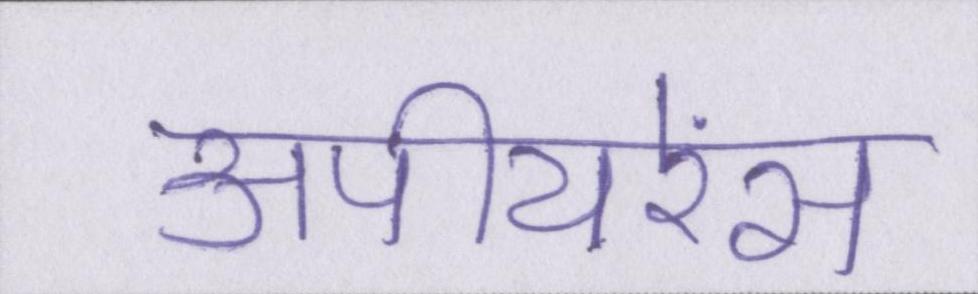 अपीयरेंस